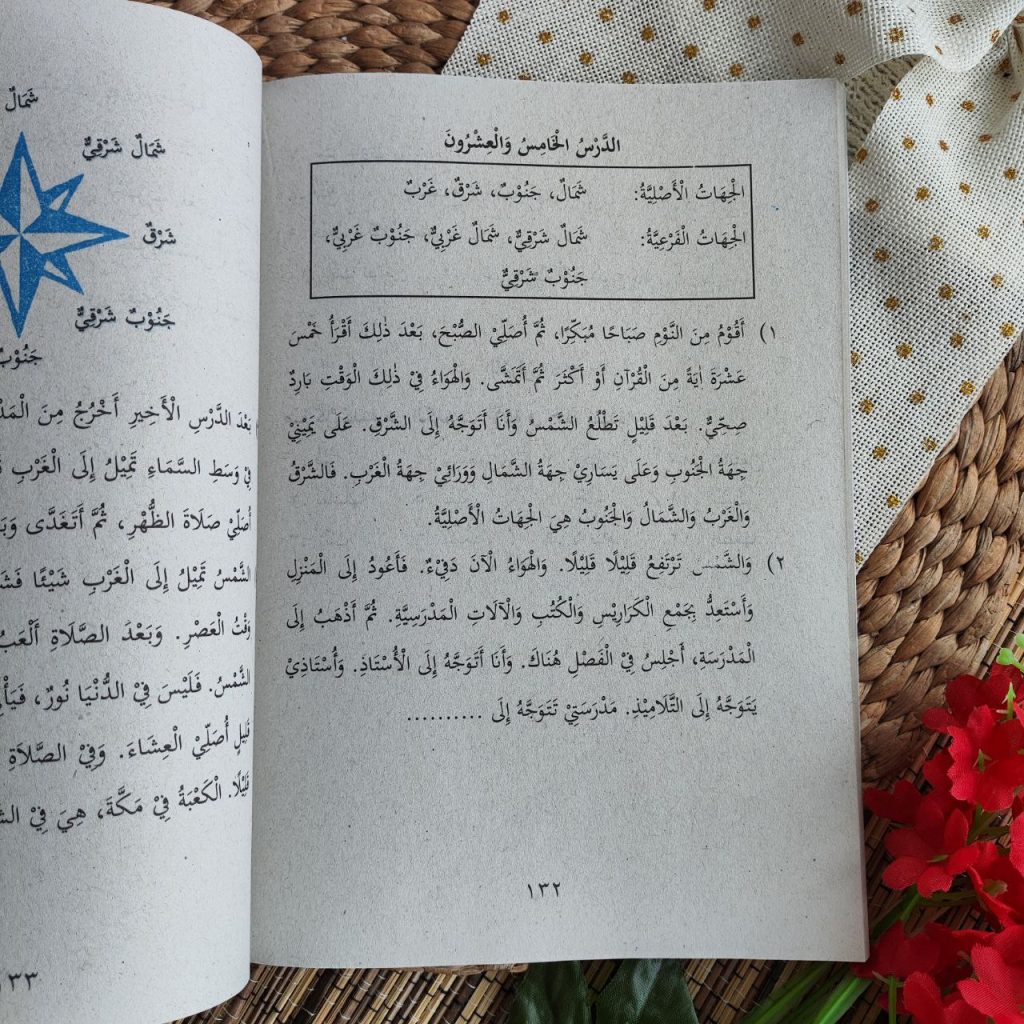 الدَّرْسُ الْخَامِسُ وَالْعِشْرُونَ
الْجِهَاتُ الْأَصْلِيَّةُ: شَمَالٌ، جَنُوْبٌ، شَرْقٌ، غَرْبٌ
الْجِهَاتُ الْفَرْعِيَّةُ: شَمَالٌ شَرْقِيٌّ، شَمَالٌ غَرْبِيٌّ، جَنُوْبٌ غَرْبِيٌّ،
جَنُوْبٌ شَرْقِيٌّ
١) أَقُوْمُ مِنَ النَّوْمِ صَبَاحًا مُبَكِّرًا، ثُمَّ أُصَلِّيْ الصُّبْحَ، بَعْدَ ذٰلِكَ أَقْرَأُ خَمْسَ
عَشْرَةَ اٰيَةً مِنَ الْقُرْآنِ أَوْ أَكْثَرَ ثُمَّ أَتَمَشَّى. وَالْهَوَاءُ فِيْ ذٰلِكَ الْوَقْتِ بَارِدٌ
صِحِّيٌّ. بَعْدَ قَلِيْلٍ تَطْلُعُ الشَّمْسُ وَأَنَا أَتَوَجَّهُ إِلَى الشَّرْقِ. عَلَى يَمِيْنِيْ
جِهَةُ الْجَنُوبِ وَعَلَى يَسَارِيْ جِهَةُ الشَّمَالِ وَوَرَائِيْ جِهَةُ الْغَرْبِ. فَالشَّرْقُ
وَالْغَرْبُ وَالشَّمَالُ وَالْجَنُوبُ هِيَ الْجِهَاتُ الْأَصْلِيَّةُ.
٢) وَالشَّمْسُ تَرْتَفِعُ قَلِيْلًا قَلِيْلًا. وَالْهَوَاءُ الْآنَ دَفِيْءٌ. فَأَعُودُ إِلَى الْمَنْزِلِ
وَأَسْتَعِدُّ بِجَمْعِ الْكَرَارِيْسِ وَالْكُتُبِ وَالْآلَاتِ الْمَدْرَسِيَّةِ. ثُمَّ أَذْهَبُ إِلَى
الْمَدْرَسَةِ، أَجْلِسُ فِيْ الْفَصْلِ هُنَاكَ. وَأَنَا أَتَوَجَّهُ إِلَى الْأُسْتَاذِ. وَأُسْتَاذِيْ
يَتَوَجَّهُ إِلَى التَّلَامِيْذِ. مَدْرَسَتِيْ تَتَوَجَّهُ إِلَى ..........
١٣٢
شَمَالٌ
شَمَالٌ شَرْقِيٌّ
شَرْقٌ
جَنُوْبٌ شَرْقِيٌّ
جَنُوْبٌ
بَعْدَ الدَّرْسِ الْأَخِيرِ أَخْرُجُ مِنَ
فِيْ وَسَطِ السَّمَاءِ تَمِيْلُ إِلَى الْغَرْبِ
أُصَلِّيْ صَلَاةَ الظُّهْرِ، ثُمَّ أَتَغَدَّى
الشَّمْسُ تَمِيْلُ إِلَى الْغَرْبِ شَيْئًا
وَقْتُ الْعَصْرِ. وَبَعْدَ الصَّلَاةِ أَلْعَبُ
الشَّمْسُ. فَلَيْسَ فِيْ الدُّنْيَا نُورٌ،
قَلِيْلٍ أُصَلِّيْ الْعِشَاءَ. وَفِيْ الصَّلَاةِ
قَلِيْلًا. الْكَعْبَةُ فِيْ مَكَّةَ، هِيَ فِيْ
١٣٣